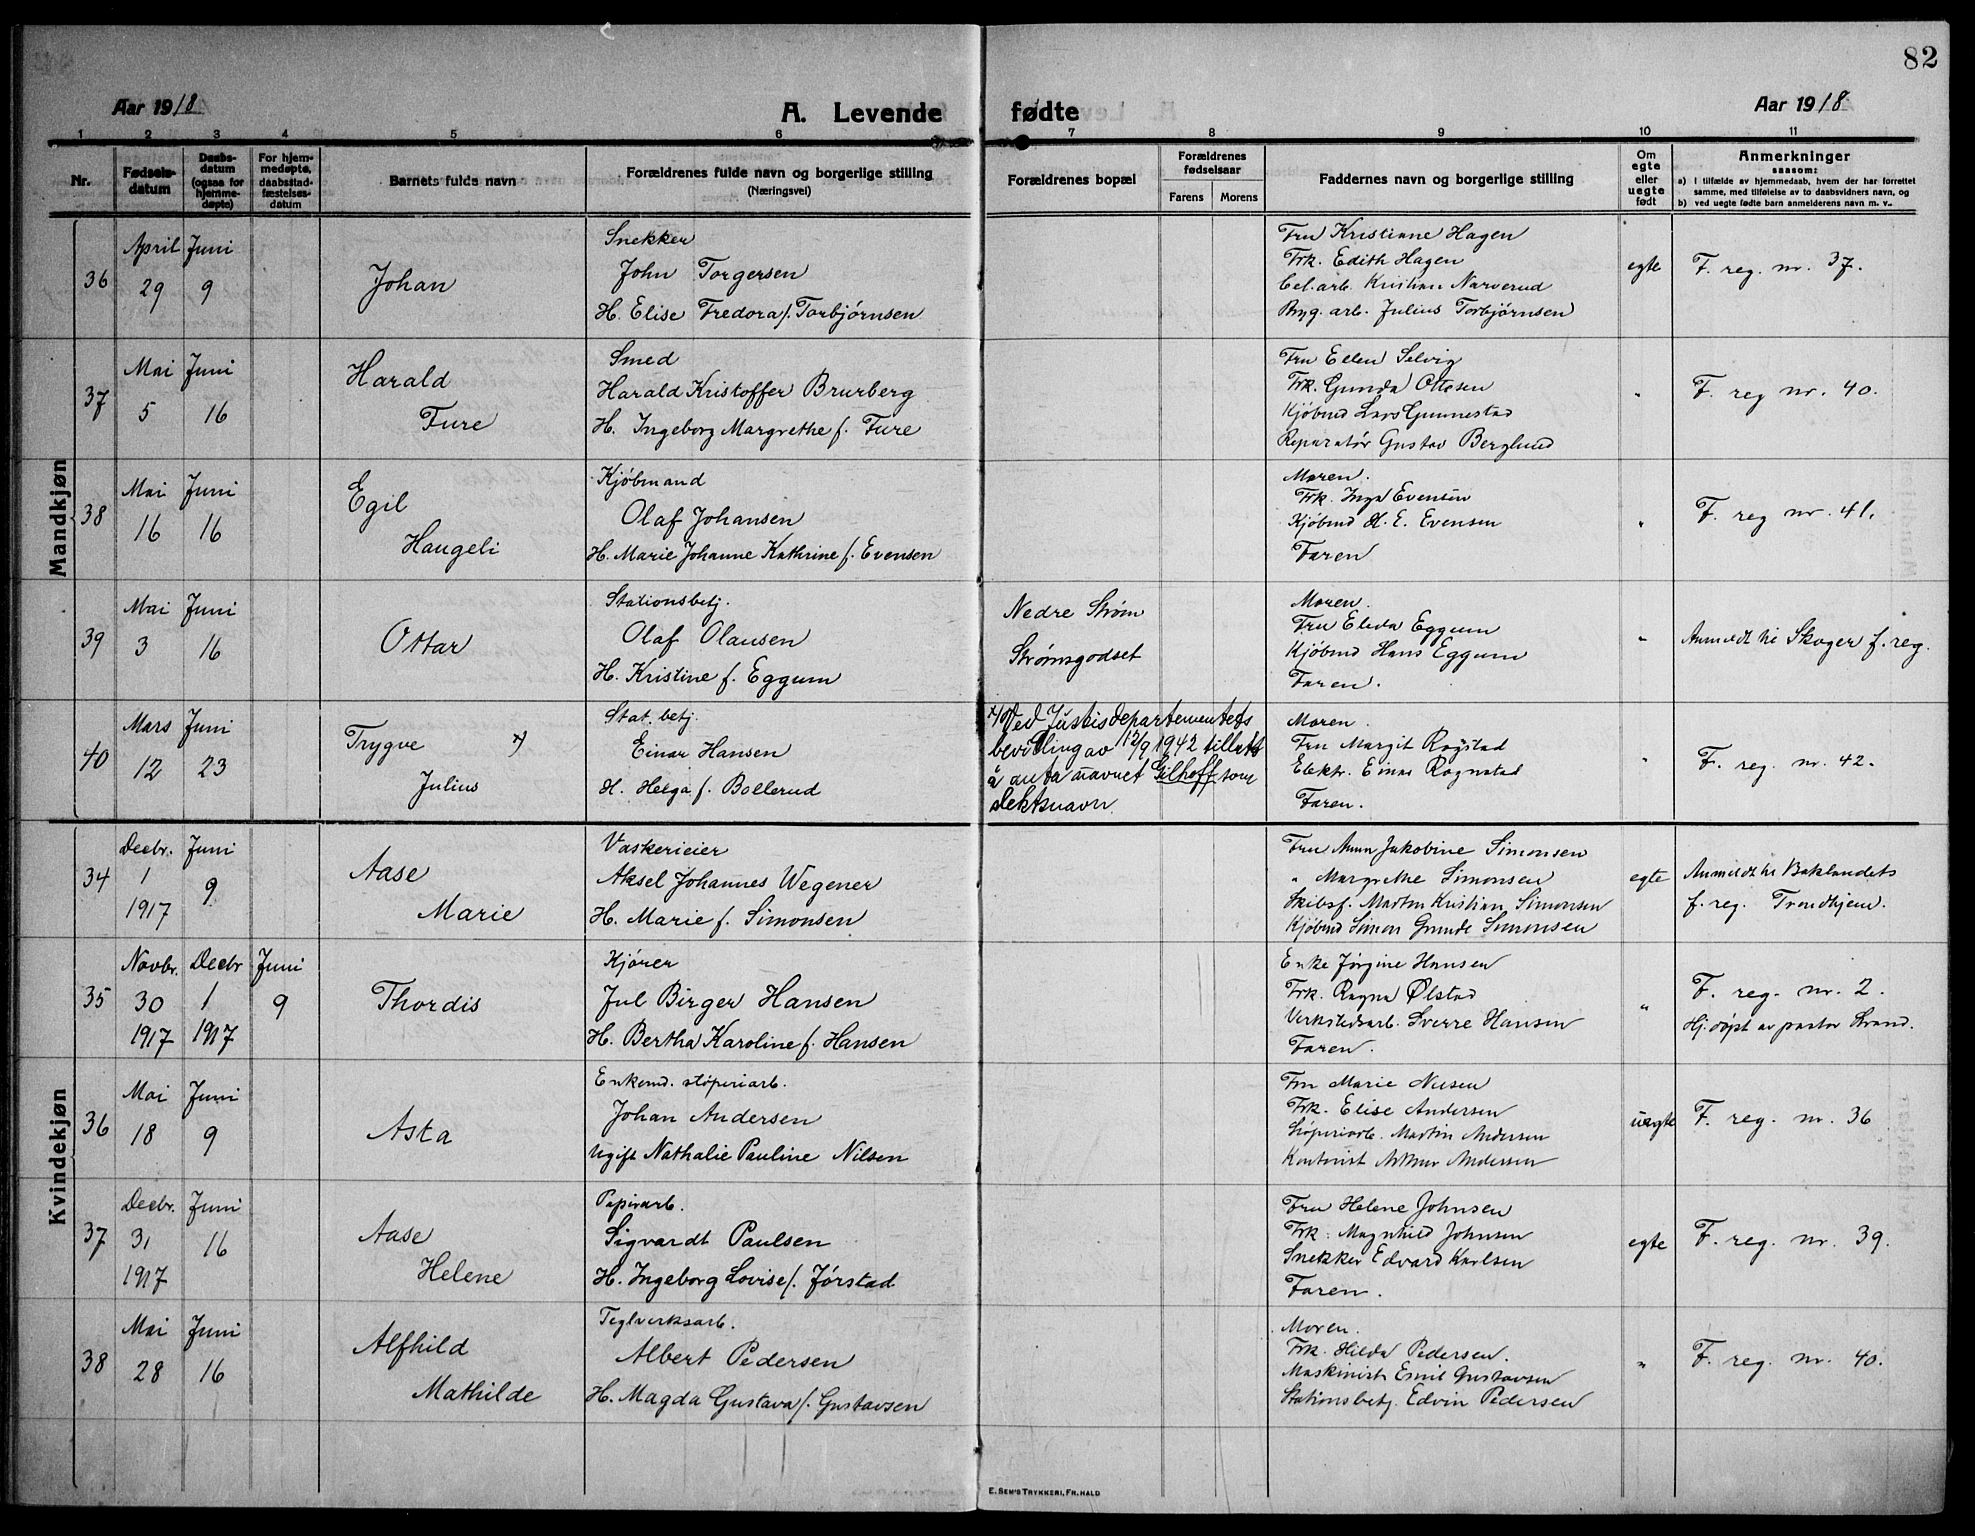 82
Aar 1918
A. Levende
fødte
Aar 1918
1 2 3 4 5 6 7 8 9 10 11
Nr.
Fødsels-
datum
Daabs-
datum
(ogsaa for
hjemme-
døpte)
For hjem-
medøpte,
daabsstad-
fæstelses-
datum
Barnets fulde navn
Forældrenes fulde navn og borgerlige stilling
(Næringsvei)
Forældrenes bopæl
Forældrenes
fødselsaar
Farens Morens
Faddernes navn og borgerlige stilling
Om
egte
eller
uegte
født
Anmerkninger
saasom:
a) I tilfælde av hjemmedaab, hvem der har forrettet
samme, med tilføielse av to daabsvidners navn, og
b) ved uegte fødte barn anmelderens navn m. v.
Mandkjøn
36
April Juni
29 9
Johan
Snekker
John Torgersen
H. Elise Fredora f. Torbjørnsen
Fru Kristiane Hagen
Frk. Edith Hagen
Cel.arb. Kristian Narverud
Byg. arb. Julius Torbjørnsen
egte
F. reg. nr. 37.
37
Mai Juni
5 16
Harald
Fure
Smed
Harald Kristoffer Brurberg
H. Ingeborg Margrethe f. Fure
Fru Ellen Selvig
Frk. Gunda Ottesen
Kjøbmd Lars Gunnestad
Reparatør Gustav Berglund
"
F. reg nr. 40.
38
Mai Juni
16 16
Egil
Haugeli
Kjøbmand
Olaf Johansen
H. Marie Johanne Kathrine f. Evensen
Moren.
Frk. Inga Evensen
Kjøbmd H. E. Evensen
Faren
"
F. reg nr. 41.
39
Mai Juni
3 16
Ottar
Stationsbetj.
Olaf Olausen
H. Kristine f. Eggum
Nedre Strøm
Strømsgodset
Moren.
Fru Elida Eggum
Kjøbmd Hans Eggum
Faren.
"
Anmeldt til Skoger f. reg.
40
Mars Juni
12 23
Trygve x)
Julius
Stat. betj.
Einar Hansen
H. Helga f. Bollerud
x) Ved Justisdepartementets
bevilling av 12/9 1942 tillatt
å anta navnet Gilhoff som
slektsnavn.
Moren.
Fru Margit Rogstad
Elektr. Einar Rognstad
Faren.
"
F. reg. nr. 42.
Kvindekjøn
34
Decbr. Juni
1 9
1917
Aase
Marie
Vaskerieier
Aksel Johannes Wegener
H. Marie f. Simonsen
Fru Anna Jakobine Simonsen
" Margrethe Simonsen
Skibsf. Martin Kristian Simonsen
Kjøbmd Simon Grunde Simonsen
egte
Anmeldt til Baklandets
f. reg. Trondhjem.
35
Novbr. Decbr Juni
30 1 9
1917 1917
Thordis
Kjører
Jul Birger Hansen
H. Bertha Karoline f. Hansen
Enke Jørgine Hansen
Frk. Ragna Ølstad
Verkstedsarb. Sverre Hansen
Faren.
"
F. reg. nr. 2.
Hj. døpt av pastor Strand.
36
Mai Juni
18 9
Asta
Enkemd. støperiarb.
Johan Andersen
Ugift Nathalie Pauline Nilsen
Fru Marie Nilsen
Frk. Elise Andersen
Støperiarb. Martin Andersen
Kontorist Arthur Andersen
uegte
F. reg. nr. 36
37
Decbr. Juni
31 16
1917
Aase
Helene
Papirarb.
Sigvardt Paulsen
H. Ingeborg Lovise f. Jørstad
Fru Helene Johnsen
Frk. Magnhild Johnsen
Snekker Edvard Karlsen
Faren.
egte
F. reg. nr. 39.
38
Mai Juni
28 16
Alfhild
Mathilde
Teglverksarb.
Albert Pedersen
H. Magda Gustava f. Gustavsen
Moren.
Frk. Hilda Pedersen.
Maskinist Emil Gustavsen
Stationsbetj. Edvin Pedersen
"
F. reg. nr. 40.
E. SEM'S TRYKKERI, FR.HALD